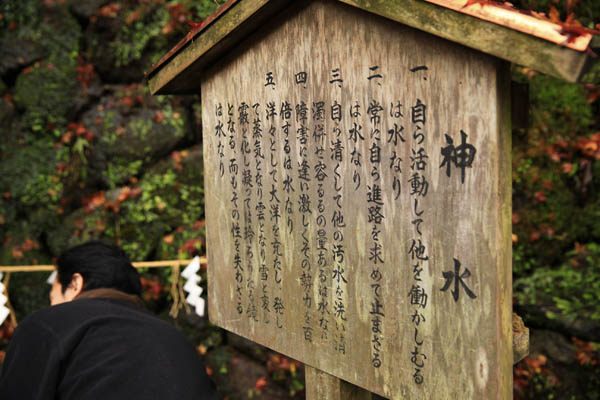 神水
一、自ら活動して他を働かしむる
は水なり
二、常に自ら進路を求めて止まざる
は水なり
三、自ら清くして他の汚水を洗い清
濁併せ容るるの量あるは水なり
四、障害に逢い激しくその勢力を百
倍するは水なり
五、洋々として大洋を充たし 発し
て蒸気となり雲となり雪と変
霰と化し凝っては玲ろうたる鏡
となる 而もその性を失わざる
は水なり